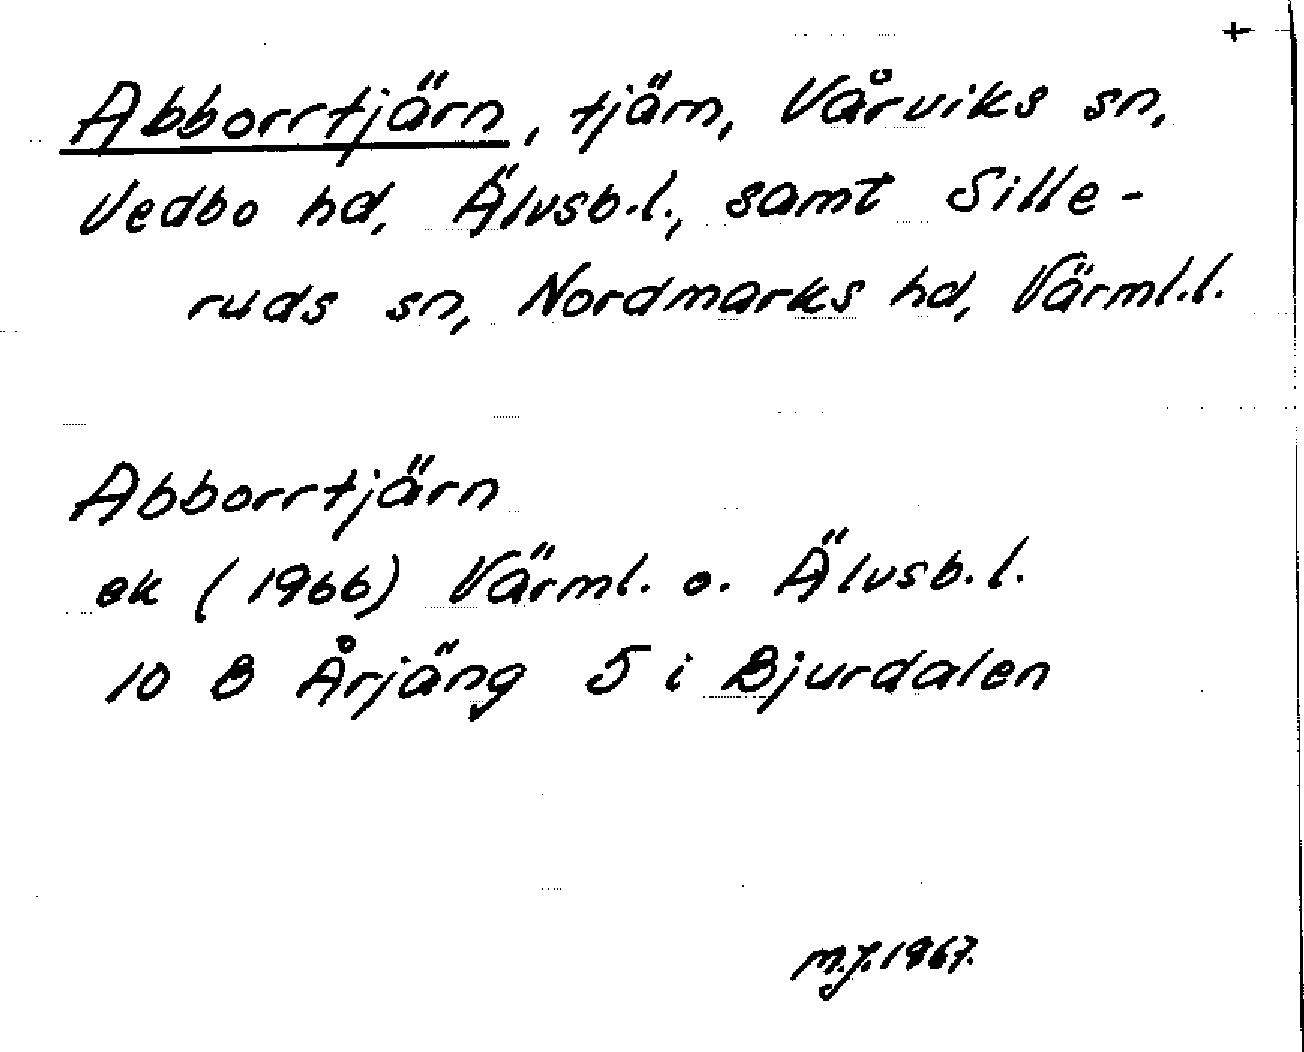 +
Abborrtjärn, tjärn, Vårviks sn,
Vedbo hd, Älvsb.l., samt Sille-
ruds sn, Nordmarks hd, Värml.l.
Abborrtjärn
ek (1966) Värml. o. Älvsb.l.
10 B Årjäng 5 i Bjurdalen
M.J.1967.